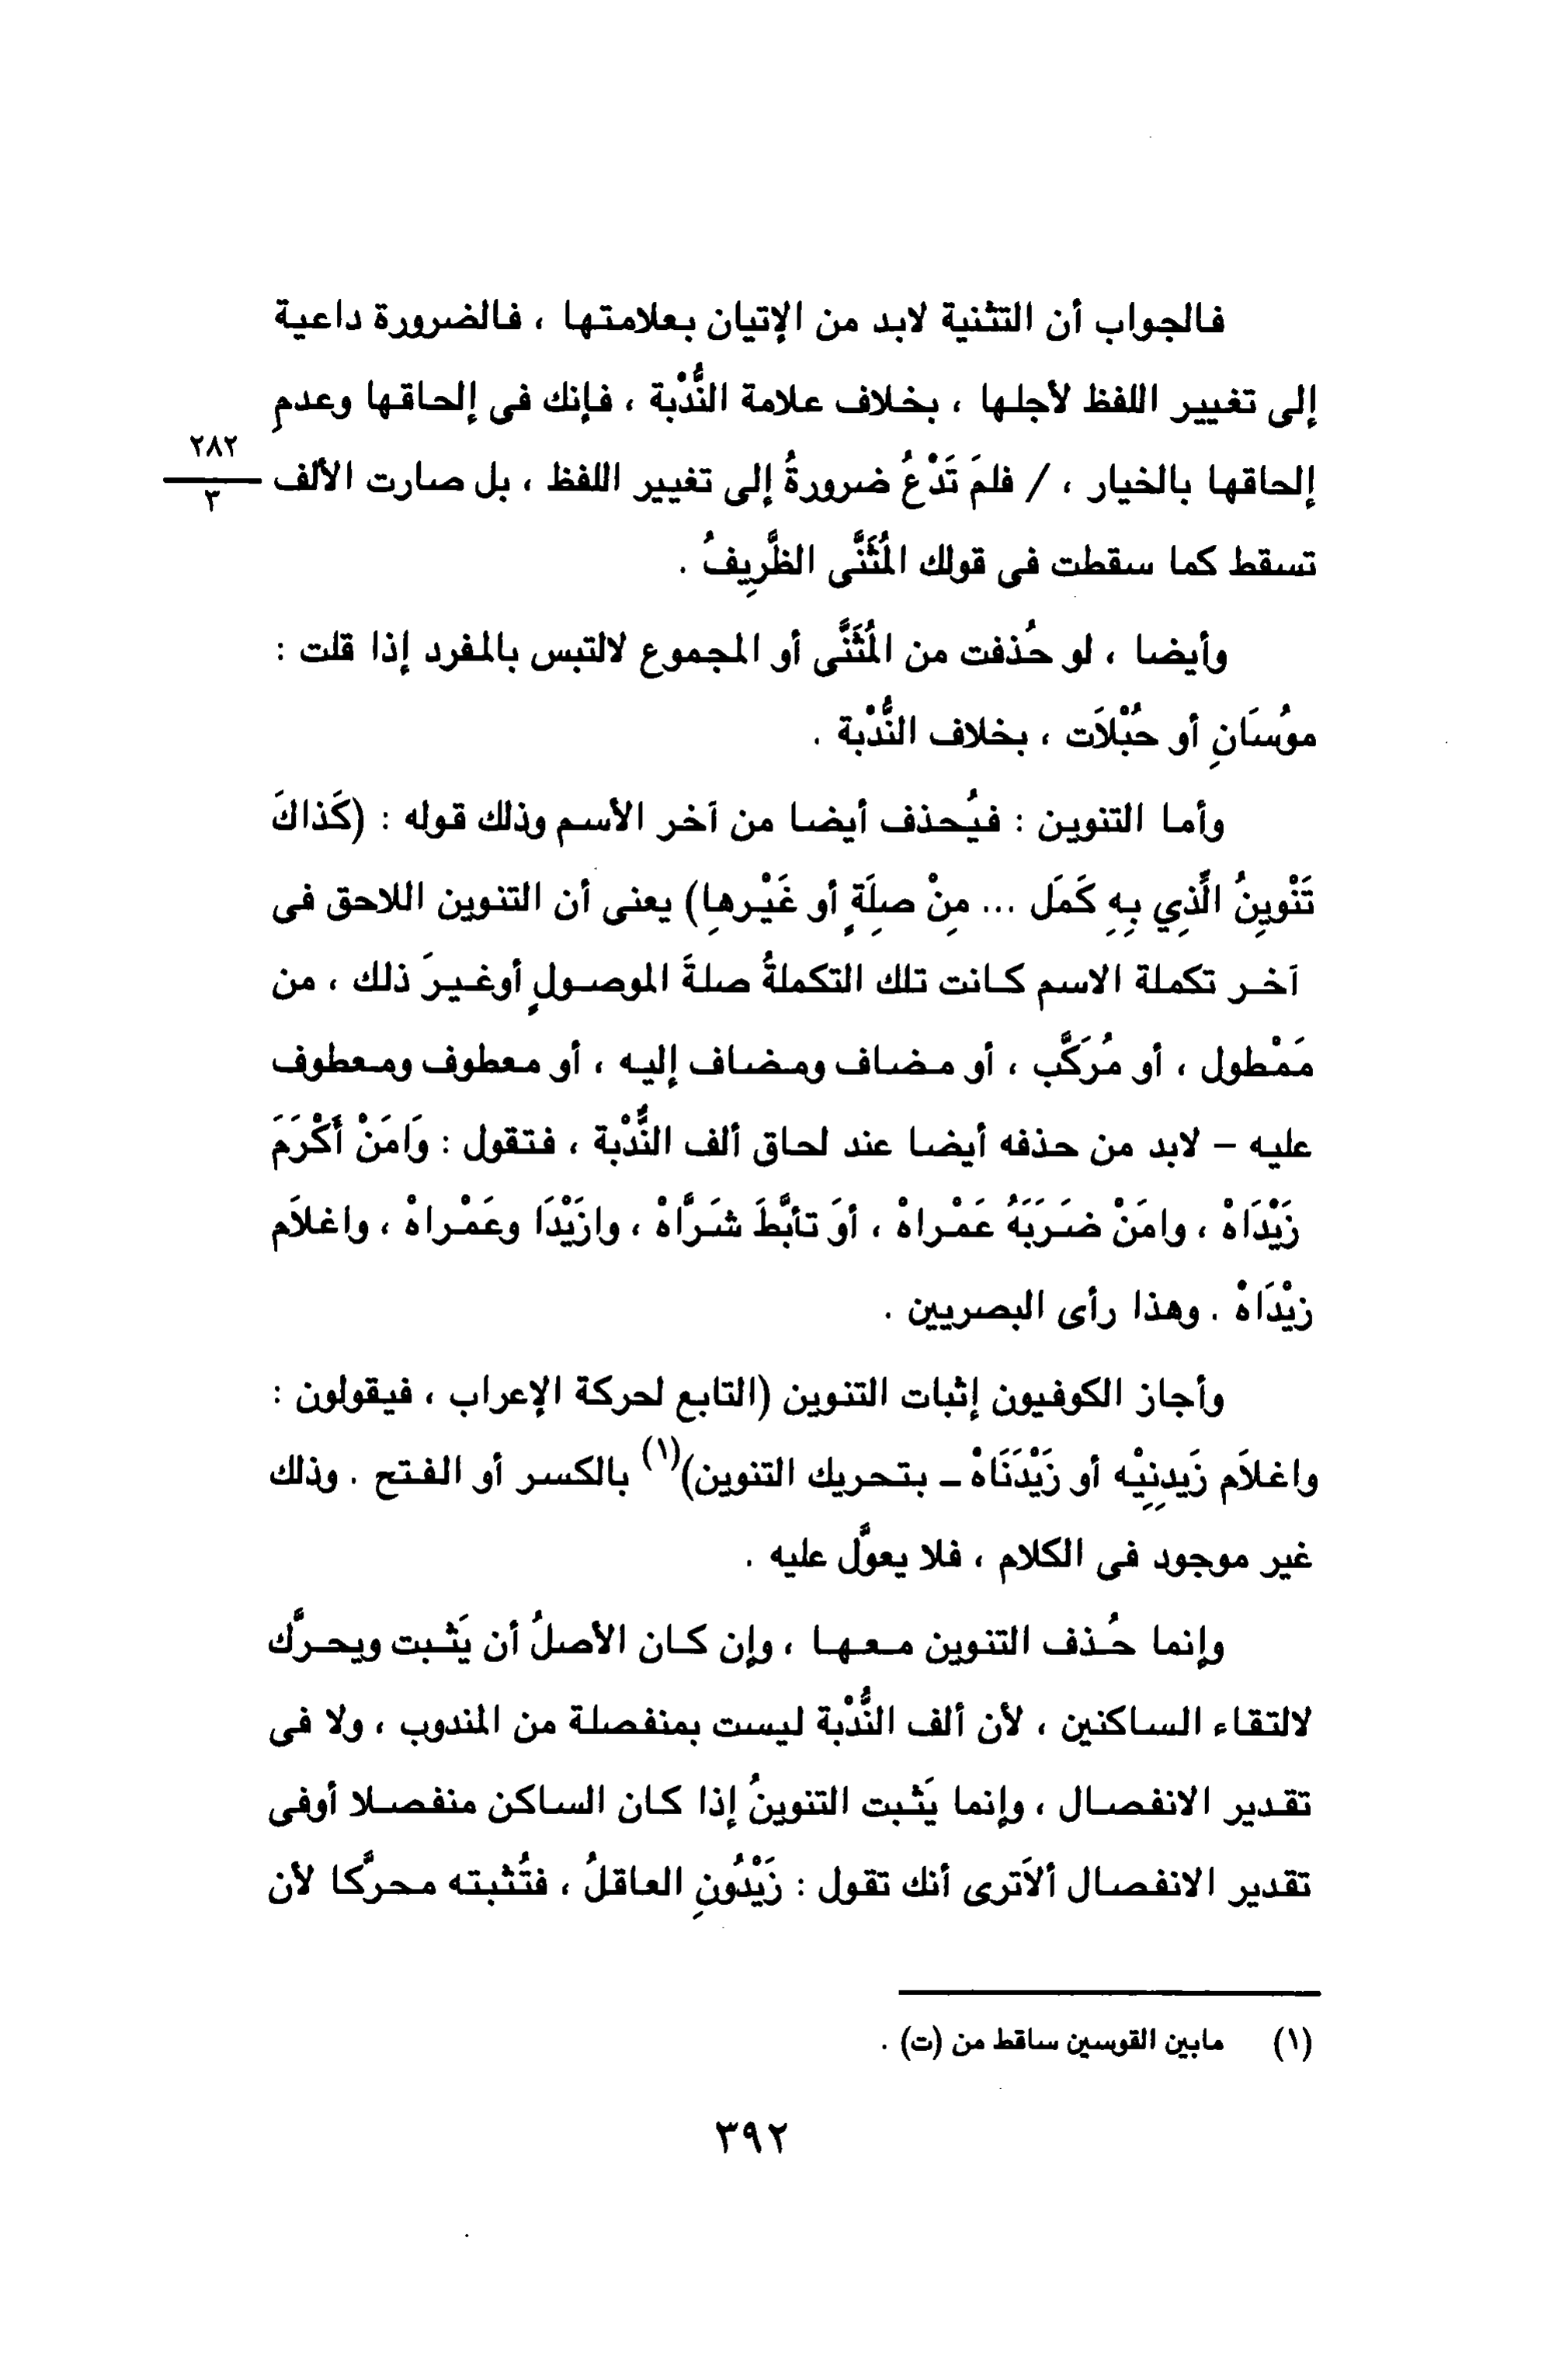 فالجواب أن التثنية لابد من الإتيان بعلامتها ، فالضرورة داعية
إلى تغيير اللفظ لأجلها ، بخلاف علامة النُّدْبة ، فإنك فى إلحاقها وعدمِ
إلحاقها بالخيار ، / فلمَ تَدْعُ ضرورةُ إلى تغيير اللفظ ، بل صارت الألف
٢٨٢
٣
تسقط كما سقطت فى قولك المُثَنَّى الظَّرِيفُ .
وأيضا ، لو حُذفت من المُثَنَّى أو المجموع لالتبس بالمفرد إذا قلت :
موُسَانِ أو حُبْلاَت ، بخلاف النُّدْبة .
وأما التنوين : فيُحذف أيضا من آخر الأسم وذلك قوله : (كَذاكَ
تَنْوِينُ الَّذِي بِهِ كَمَل ... مِنْ صلَةٍ أو غَيْرِها) يعنى أن التنوين اللاحق فى
آخر تكملة الاسم كانت تلك التكملةُ صلةَ الموصولِ أوغيرَ ذلك ، من
مَمْطول ، أو مُرَكَّب ، أو مضاف ومضاف إليه ، أو معطوف ومعطوف
عليه – لابد من حذفه أيضا عند لحاق ألف النُّدْبة ، فتقول : وَامَنْ أَكْرَمَ
زَيْدَاهْ ، وامَنْ ضَرَبَهُ عَمْراهْ ، أوَ تأبَّطَ شَرَّاهْ ، وازَيْدَا وعَمْراهْ ، واغلاَم
زيْدَاهْ . وهذا رأى البصريين .
وأجاز الكوفيون إثبات التنوين (التابع لحركة الإعراب ، فيقولون :
واغلاَم زَيدِنِيْه أو زَيْدَنَاهْ – بتحريك التنوين)(١) بالكسر أو الفتح . وذلك
غير موجود فى الكلام ، فلا يعوَّل عليه .
وإنما حُذف التنوين معها ، وإن كان الأصلُ أن يَثبت ويحرَّك
لالتقاء الساكنين ، لأن ألف النُّدْبة ليست بمنفصلة من المندوب ، ولا فى
تقدير الانفصال ، وإنما يَثبت التنوينُ إذا كان الساكن منفصلا أوفى
تقدير الانفصال ألاَترى أنك تقول : زَيْدُونِ العاقلُ ، فتُثبته محرَّكا لأن
(١) مابين القوسين ساقط من (ت) .
٣٩٢